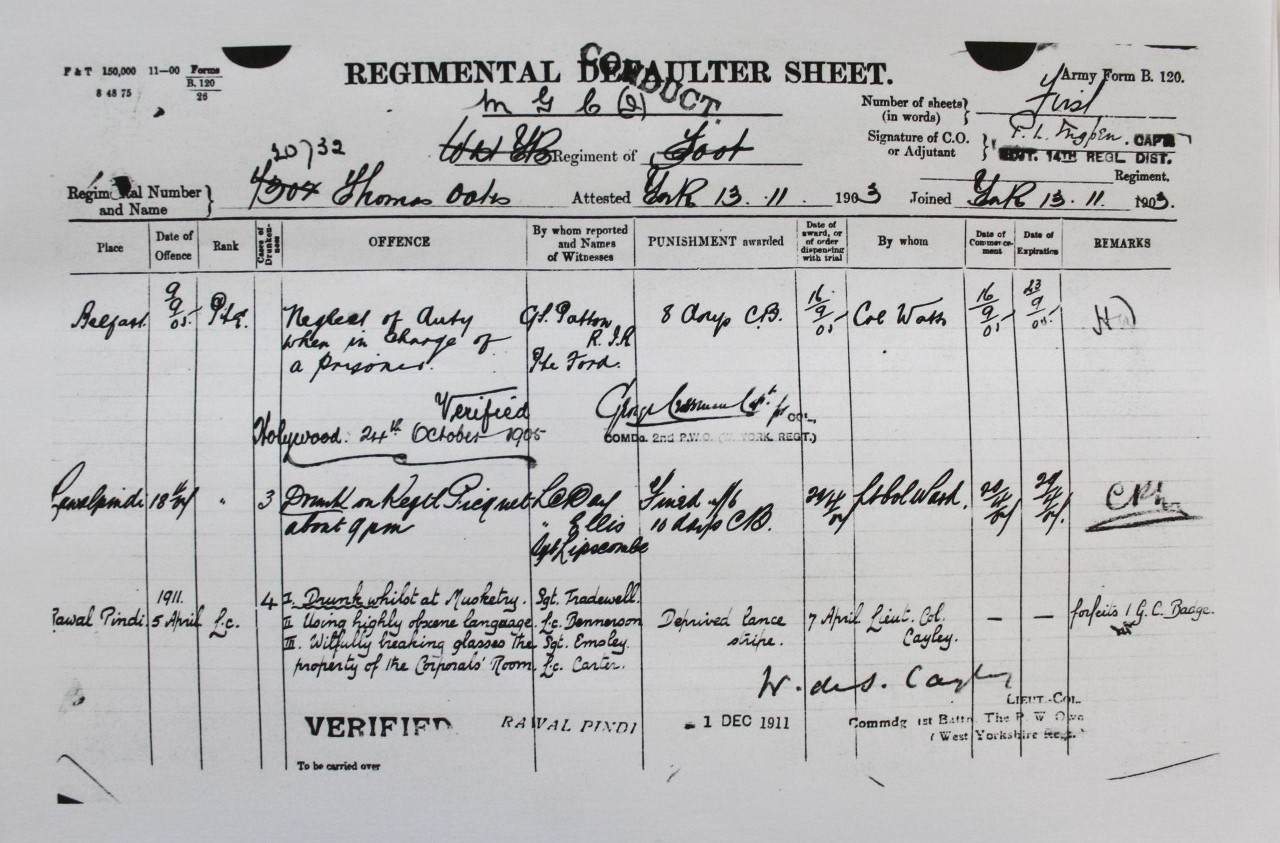 F & T 150,000 11—00 Forms
B. 120
26
8 48 75
REGIMENTAL DEFAULTER SHEET.
CONDUCT
Army Form B. 120.
M G C
Number of sheets
(in words)
First
Signature of C.O.
or Adjutant
CAPT
ADJT. 14TH REGL. DIST.
Regiment of Foot
Regiment.
20732
Regimental Number
and Name
Thomas Oates Attested York 13. 11. 1903 Joined York 13. 11. 1903.
Place Date of Offence Rank Cases of Drunkenness OFFENCE By whom reported and Names of Witnesses PUNISHMENT awarded Date of award, or of order dispensing with trial By whom Date of Commencement Date of Expiration REMARKS
Belfast 9/9/05 Pte. Neglect of duty 8 days C.B. 16/9/05 Col 16/9/05 23/9/05
when in charge of R. I. R
a prisoner. Pte Ford.
Verified
Holywood. 24th October 1905
COL.,
COMDG. 2nd P.W.O. (W. YORK. REGT.)
Rawalpindi 18 " 3 Drunk on Regtl Picquet Fined
about 9 pm " Ellis 10 days C.B.
Sgt Lipscombe
1911.
Rawal Pindi. 5 April L.c. 4 I. Drunk whilst at Musketry. Sgt. Tradewell. Deprived lance 7 April Lieut. Col. — — forfeits 1 G. C. Badge.
II Using highly obscene language. L.c. Dennerson stripe. Cayley.
III. Wilfully breaking glasses the Sgt. Emsley.
property of the Corporals' Room. L.c. Carter.
W. de S. Cayley
LIEUT.-COL.
VERIFIED RAWAL PINDI - 1 DEC 1911 Commdg 1st Battn. The P. W. Own
(West Yorkshire Regt.)
To be carried over